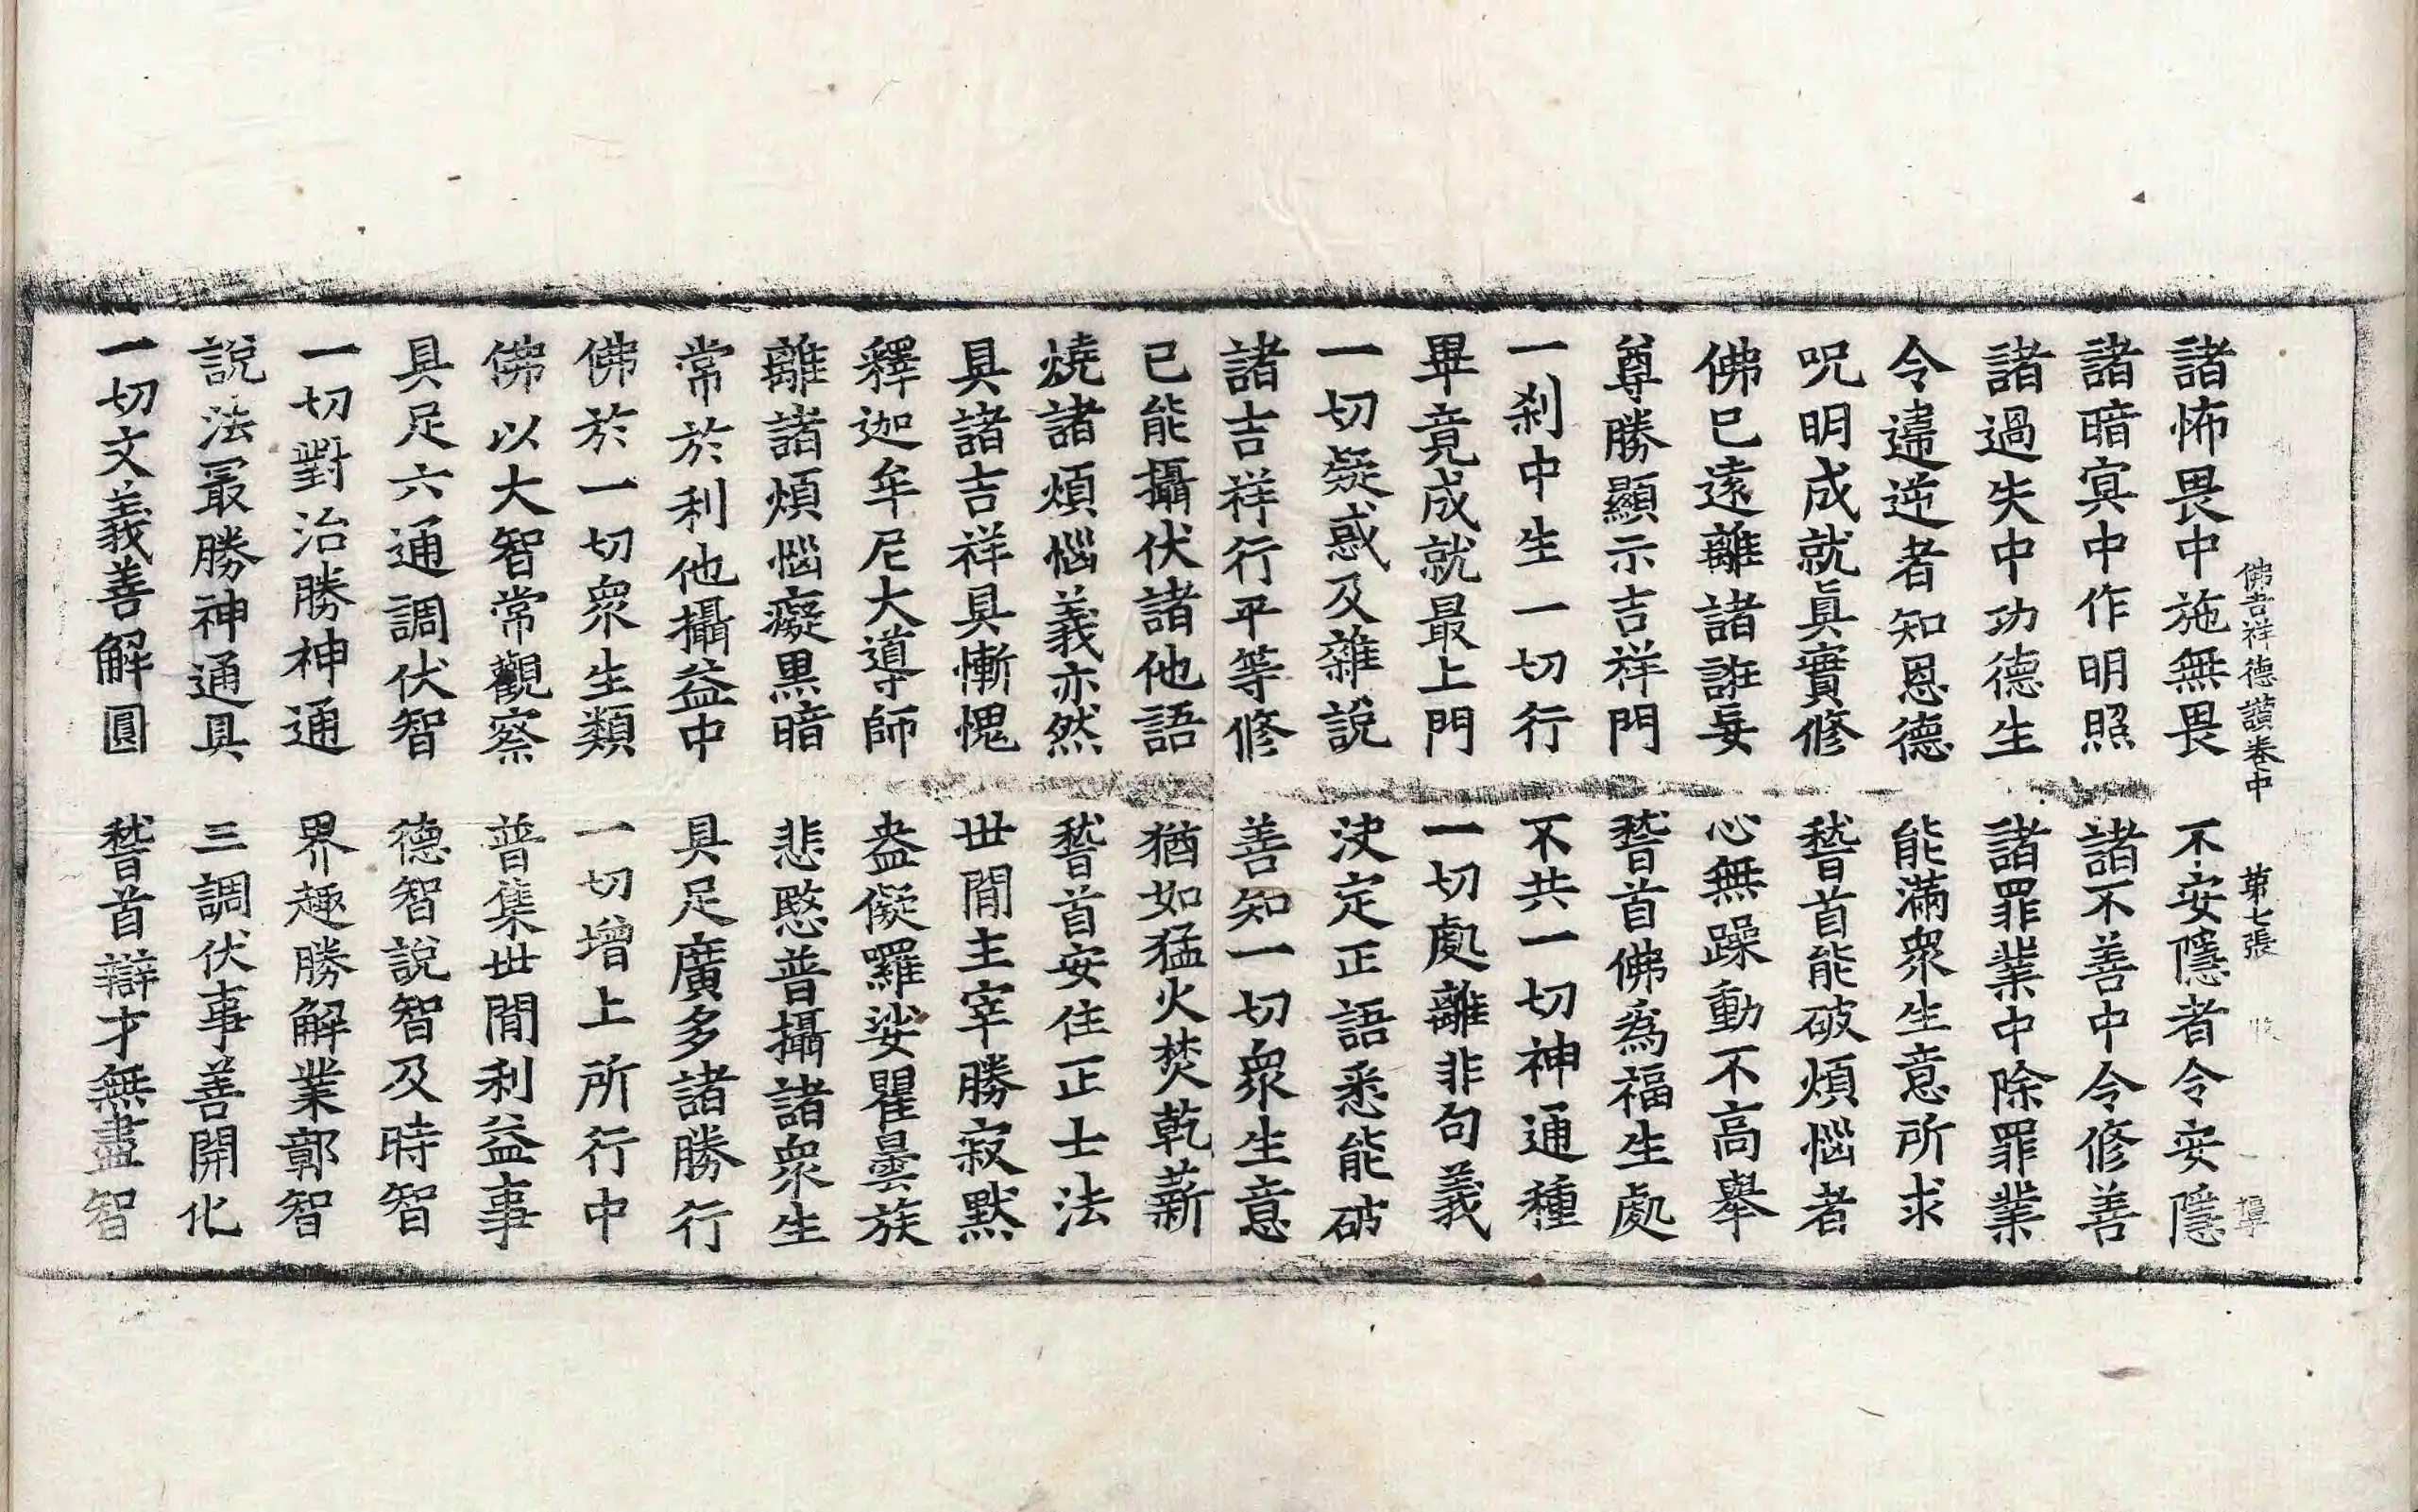 佛吉祥德讃卷中 第七張
諸怖畏中施無畏 不安隱者令安隱
諸暗冥中作明照 諸不善中令修善
諸過失中功德生 諸罪業中除罪業
令違逆者知恩德 能滿衆生意所求
呪明成就眞實修 稽首能破煩惱者
佛已遠離諸誑妄 心無躁動不高擧
尊勝顯示吉祥門 稽首佛爲福生處
一刹中生一切行 不共一切神通種
畢竟成就最上門 一切處離非句義
一切疑惑及雜說 決定正語悉能破
諸吉祥行平等修 善知一切衆生意
已能攝伏諸他語 猶如猛火焚乾薪
燒諸煩惱義亦然 稽首安住正士法
具諸吉祥具慚愧 世間主宰勝寂默
釋迦牟尼大導師 盎儗囉娑瞿曇族
離諸煩惱癡黒暗 悲愍普攝諸衆生
常於利他攝益中 具足廣多諸勝行
佛於一切衆生類 一切增上所行中
佛以大智常觀察 普集世間利益事
具足六通調伏智 德智說智及時智
一切對治勝神通 界趣勝解業鄣智
說法最勝神通具 三調伏事善開化
一切文義善解圓 稽首辯才無盡智